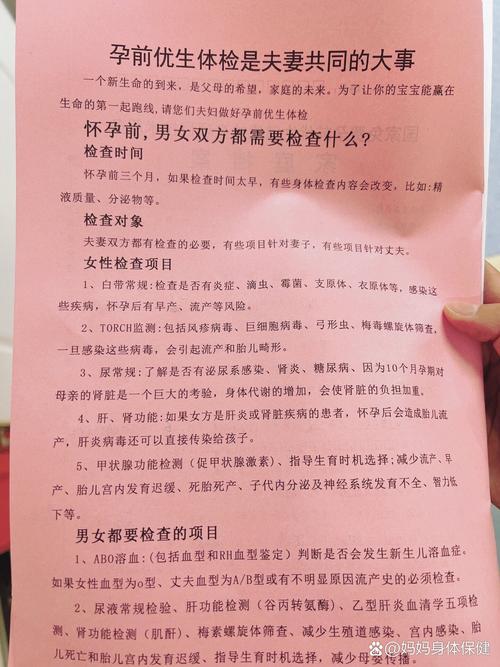 孕前优生体检是夫妻共同的大事
一个新生命的到来,是父母的希望,家庭的未来。为了让你的宝宝能赢在
生命的第一起跑线,请您们夫妇做好孕前优生体检
怀孕前,男女双方都需要检查什么?
检查时间
怀孕前三个月,如果检查时间太早,有些身体检查内容会改变,比如:精
液质量、分泌物等。
检查对象
夫妻双方都有检查的必要,有些项目针对妻子,有些项目针对丈夫。
女性检查项目
1、白带常规:检查是否有炎症、滴虫、霉菌、支原体、衣原体等,感染这
些疾病,怀孕后有早产、流产等风险。
2、TORCH监测:包括风疹病毒、巨细胞病毒、弓形虫、梅毒螺旋体筛查,
一旦感染这些病毒,会引起流产和胎儿畸形。
3、尿常规:了解是否有泌尿系感染、肾炎、糖尿病、因为10个月孕期对
母亲的肾脏是一个巨大的考验,身体代谢的增加,会使肾脏的负担加重。
4、肝、肾功能:如果女方是肝炎或肾脏疾病的患者,怀孕后会造成胎儿流
产,肝炎病毒还可以直接传染给孩子。
5、甲状腺功能检测(促甲状腺激素)、指导生育时机选择;减少流产、早
产、胎儿宫内发育迟缓、死胎死产、子代内分泌及神经系统发育不全、智力低
下等。
男女都要检查的项目
1、ABO溶血:(包括血型和RH血型鉴定)判断是否会发生新生儿溶血症。
如果女性血型为o型、丈夫血型为A/B型或有不明显原因流产史的必须检查。
2、尿液常规检验、肝功能检测(谷丙转氨酶)、乙型肝炎血清学五项检
测、肾功能检测(肌酐)、梅素螺旋体筛查、减少生殖道感染、宫内感染、胎
儿死亡和胎儿发育迟缓、减少母婴传播。
@妈妈身体保健